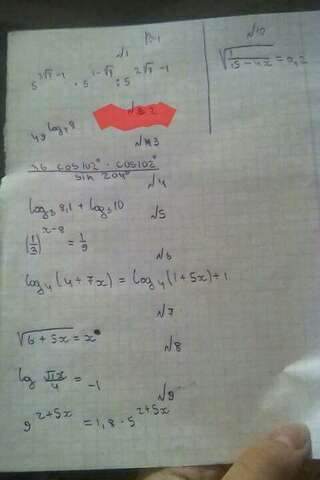 №1
5^{3√7-1} · 5^{1-√7} : 5^{2√7-1}
№ 2
49^{log_7 8}
№ 3
36 cos102° · cos102°
sin 204°
№4
log_3 8,1 + log_3 10
№5
(1/3)^{x-8} = 1/9
№6
log_4(4+7x) = log_4(1+5x)+1
№7
√6+5x = x
№8
log πx/4 = -1
№9
9^{2+5x} = 1,8 · 5^{2+5x}
№10
√(1/(15-4x)) = 0,2